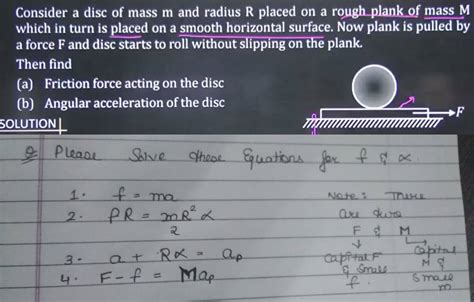 Consider a disc of mass m and radius R placed on a rough plank of mass M
which in turn is placed on a smooth horizontal surface. Now plank is pulled by
a force F and disc starts to roll without slipping on the plank.
Then find
(a) Friction force acting on the disc
(b) Angular acceleration of the disc
F
SOLUTION
Q Please Solve these Equations for f & α.
1. f = ma
2. fR = mR²α/2
3. a + Rα = ap
4. F - f = Map
Note: There
are two
F & M
Capital F
& small
f.
Capital
M &
Small
m